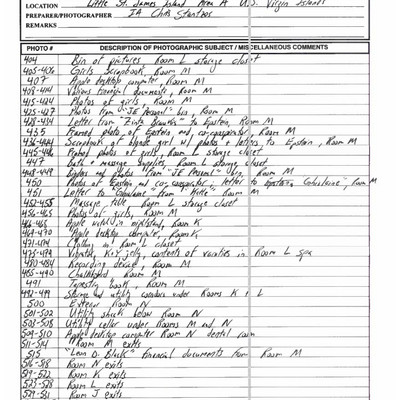 LOCATION Little St. James Island Area A U.S. Virgin Islands
PREPARER/PHOTOGRAPHER IA Chris
REMARKS
PHOTO # DESCRIPTION OF PHOTOGRAPHIC SUBJECT / MISCELLANEOUS COMMENTS
404 Bin of pictures, Room L storage closet
405-406 Girls Scrapbook, Room M
407 Apple desktop computer, Room M
408-414 Various financial documents, Room M
415-424 Photos of girls, Room M
425-427 Photo from "JE Personal" bin, Room M
428-434 Letter from to Epstein, Room M
435 Framed photo of Epstein and co-conspirator, Room M
Scrapbook of blonde girl w/ photos + letters to Epstein, Room M
445-446 Framed photos of girls, Room L storage closet
447 Bath + massage supplies, Room L storage closet
448-449 and photos from "JE Personal" bin, Room M
450 Photos of Epstein and co-conspirator; letter to Epstein, Room M
451 Letter to from Room M
452-455 Massage table Room L storage closet
456-465 Photos of girls, Room M
466-468 Apple in nightstand, Room K
469-470 Apple desktop computer, Room K
471-474 Clothing in Room L closet
475-479 Vanities, K-Y jelly, contents of vanities in Room L spa
480-484 Recording device, Room M
485-490 Chalkboard Room M
491 Tapestry book, Room M
492-499 Storage and utility corridors under Rooms K + L
500 Exterior Room N
501-502 Utility shack below Room N
503-508 Utility cellar under Rooms M and N
509-510 Apple desktop computer Room N dental room
511-514 Room M exits
515 "Leon D. Black" financial documents from Room M
516-518 Room N exits
519-522 Room K exits
523-528 Room L exits
529-531 Room J exits